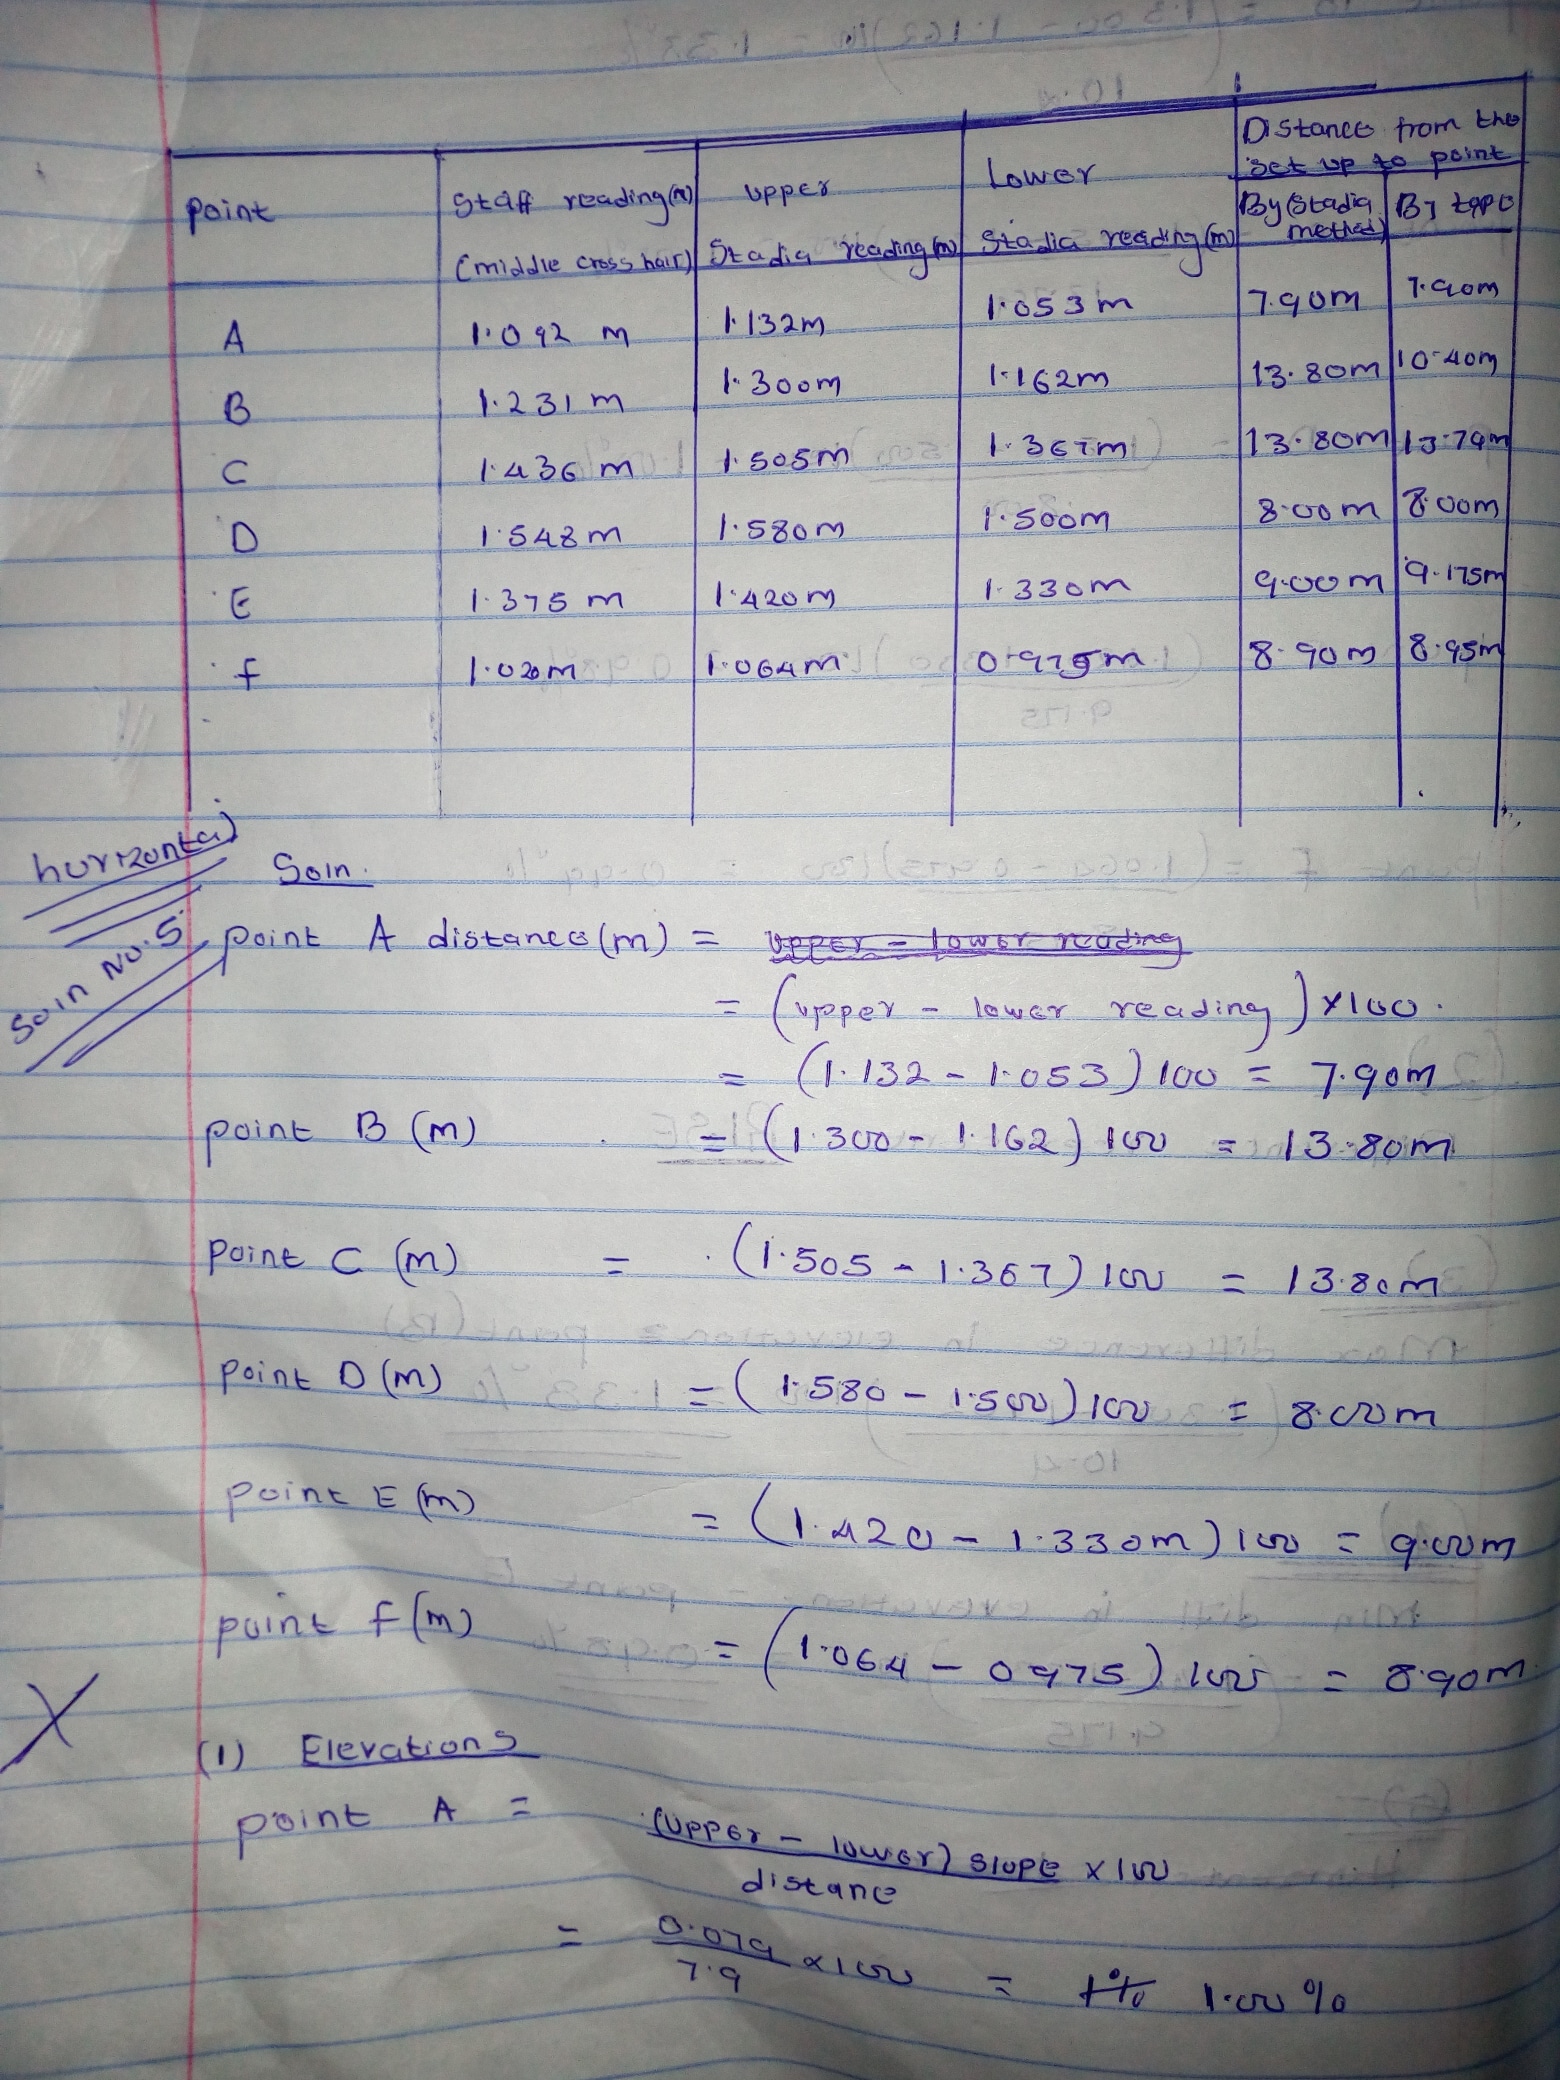 Distance from the
set up to point
point
Staff reading(m)
(middle cross hair)
upper
Stadia reading(m)
Lower
Stadia reading(m)
By (Stadia method)
By tape
A 1.092 m 1.132m 1.053m 7.90m 7.90m
B 1.231m 1.300m 1.162m 13.80m 10.40m
C 1.436m 1.505m 1.367m 13.80m 13.79m
D 1.548m 1.580m 1.500m 8.00m 8.00m
E 1.375m 1.420m 1.330m 9.00m 9.175m
f 1.020m 1.064m 0.975m 8.90m 8.95m
horizontal
Soln.
Soln No.5
point A distance(m) = upper - lower reading
= (upper - lower reading) x100.
= (1.132 - 1.053) 100 = 7.90m
point B (m) = (1.300 - 1.162) 100 = 13.80m
point C (m) = (1.505 - 1.367) 100 = 13.80m
point D (m) = (1.580 - 1.500) 100 = 8.00m
point E (m) = (1.420 - 1.330m) 100 = 9.00m
point f (m) = (1.064 - 0.975) 100 = 8.90m
X
(1) Elevations
point A = (upper - lower) slope x 100
distane
= 0.079 x 100 = 1% 1.00%
7.9